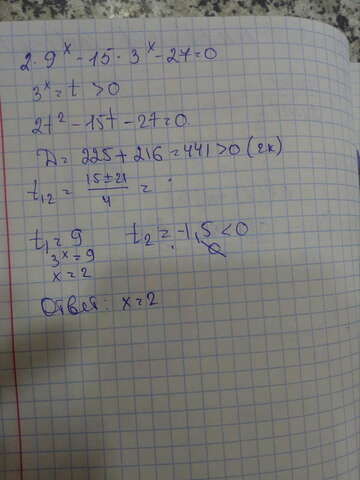 2·9ˣ-15·3ˣ-27=0
3ˣ=t >0
2t²-15t-27=0
D=225+216=441>0 (2к)
t₁₂=(15±21)/4=
t₁=9 t₂=-1,5<0
3ˣ=9 ∅
x=2
Ответ: x=2